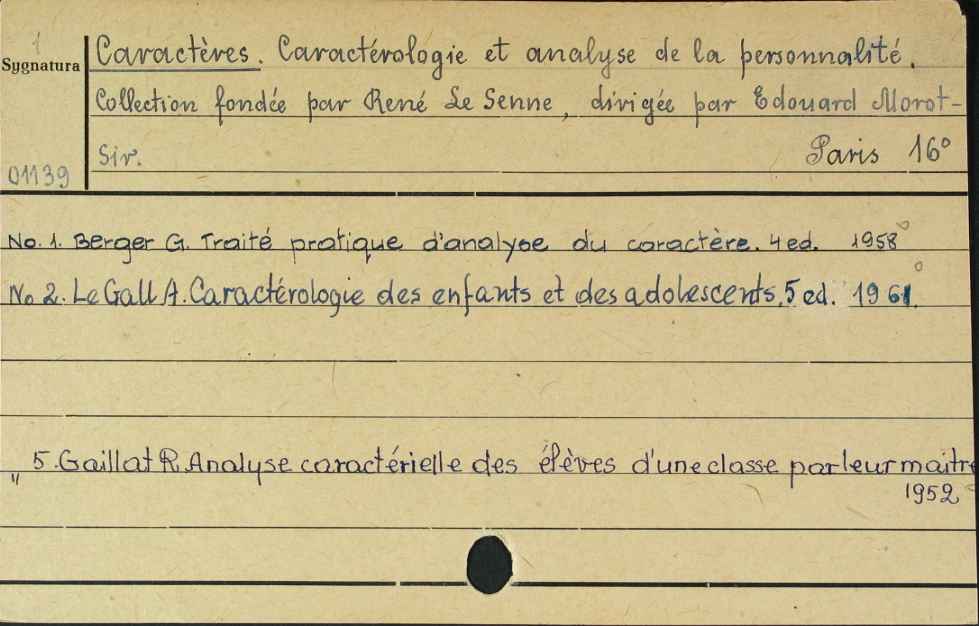 1
Sygnatura
Caractères. Caractérologie et analyse de la personnalité.
Collection fondée par René Le Senne, dirigée par Edouard Morot-
Sir. Paris 16°
01139
No. 1. Berger G. Traité pratique d'analyse du caractère. 4 ed. 1958
No 2. Le Gall A. Caractérologie des enfants et des adolescents. 5 ed. 1961.
" 5. Gaillat R. Analyse caractérielle des élèves d'une classe par leur maitre
1952